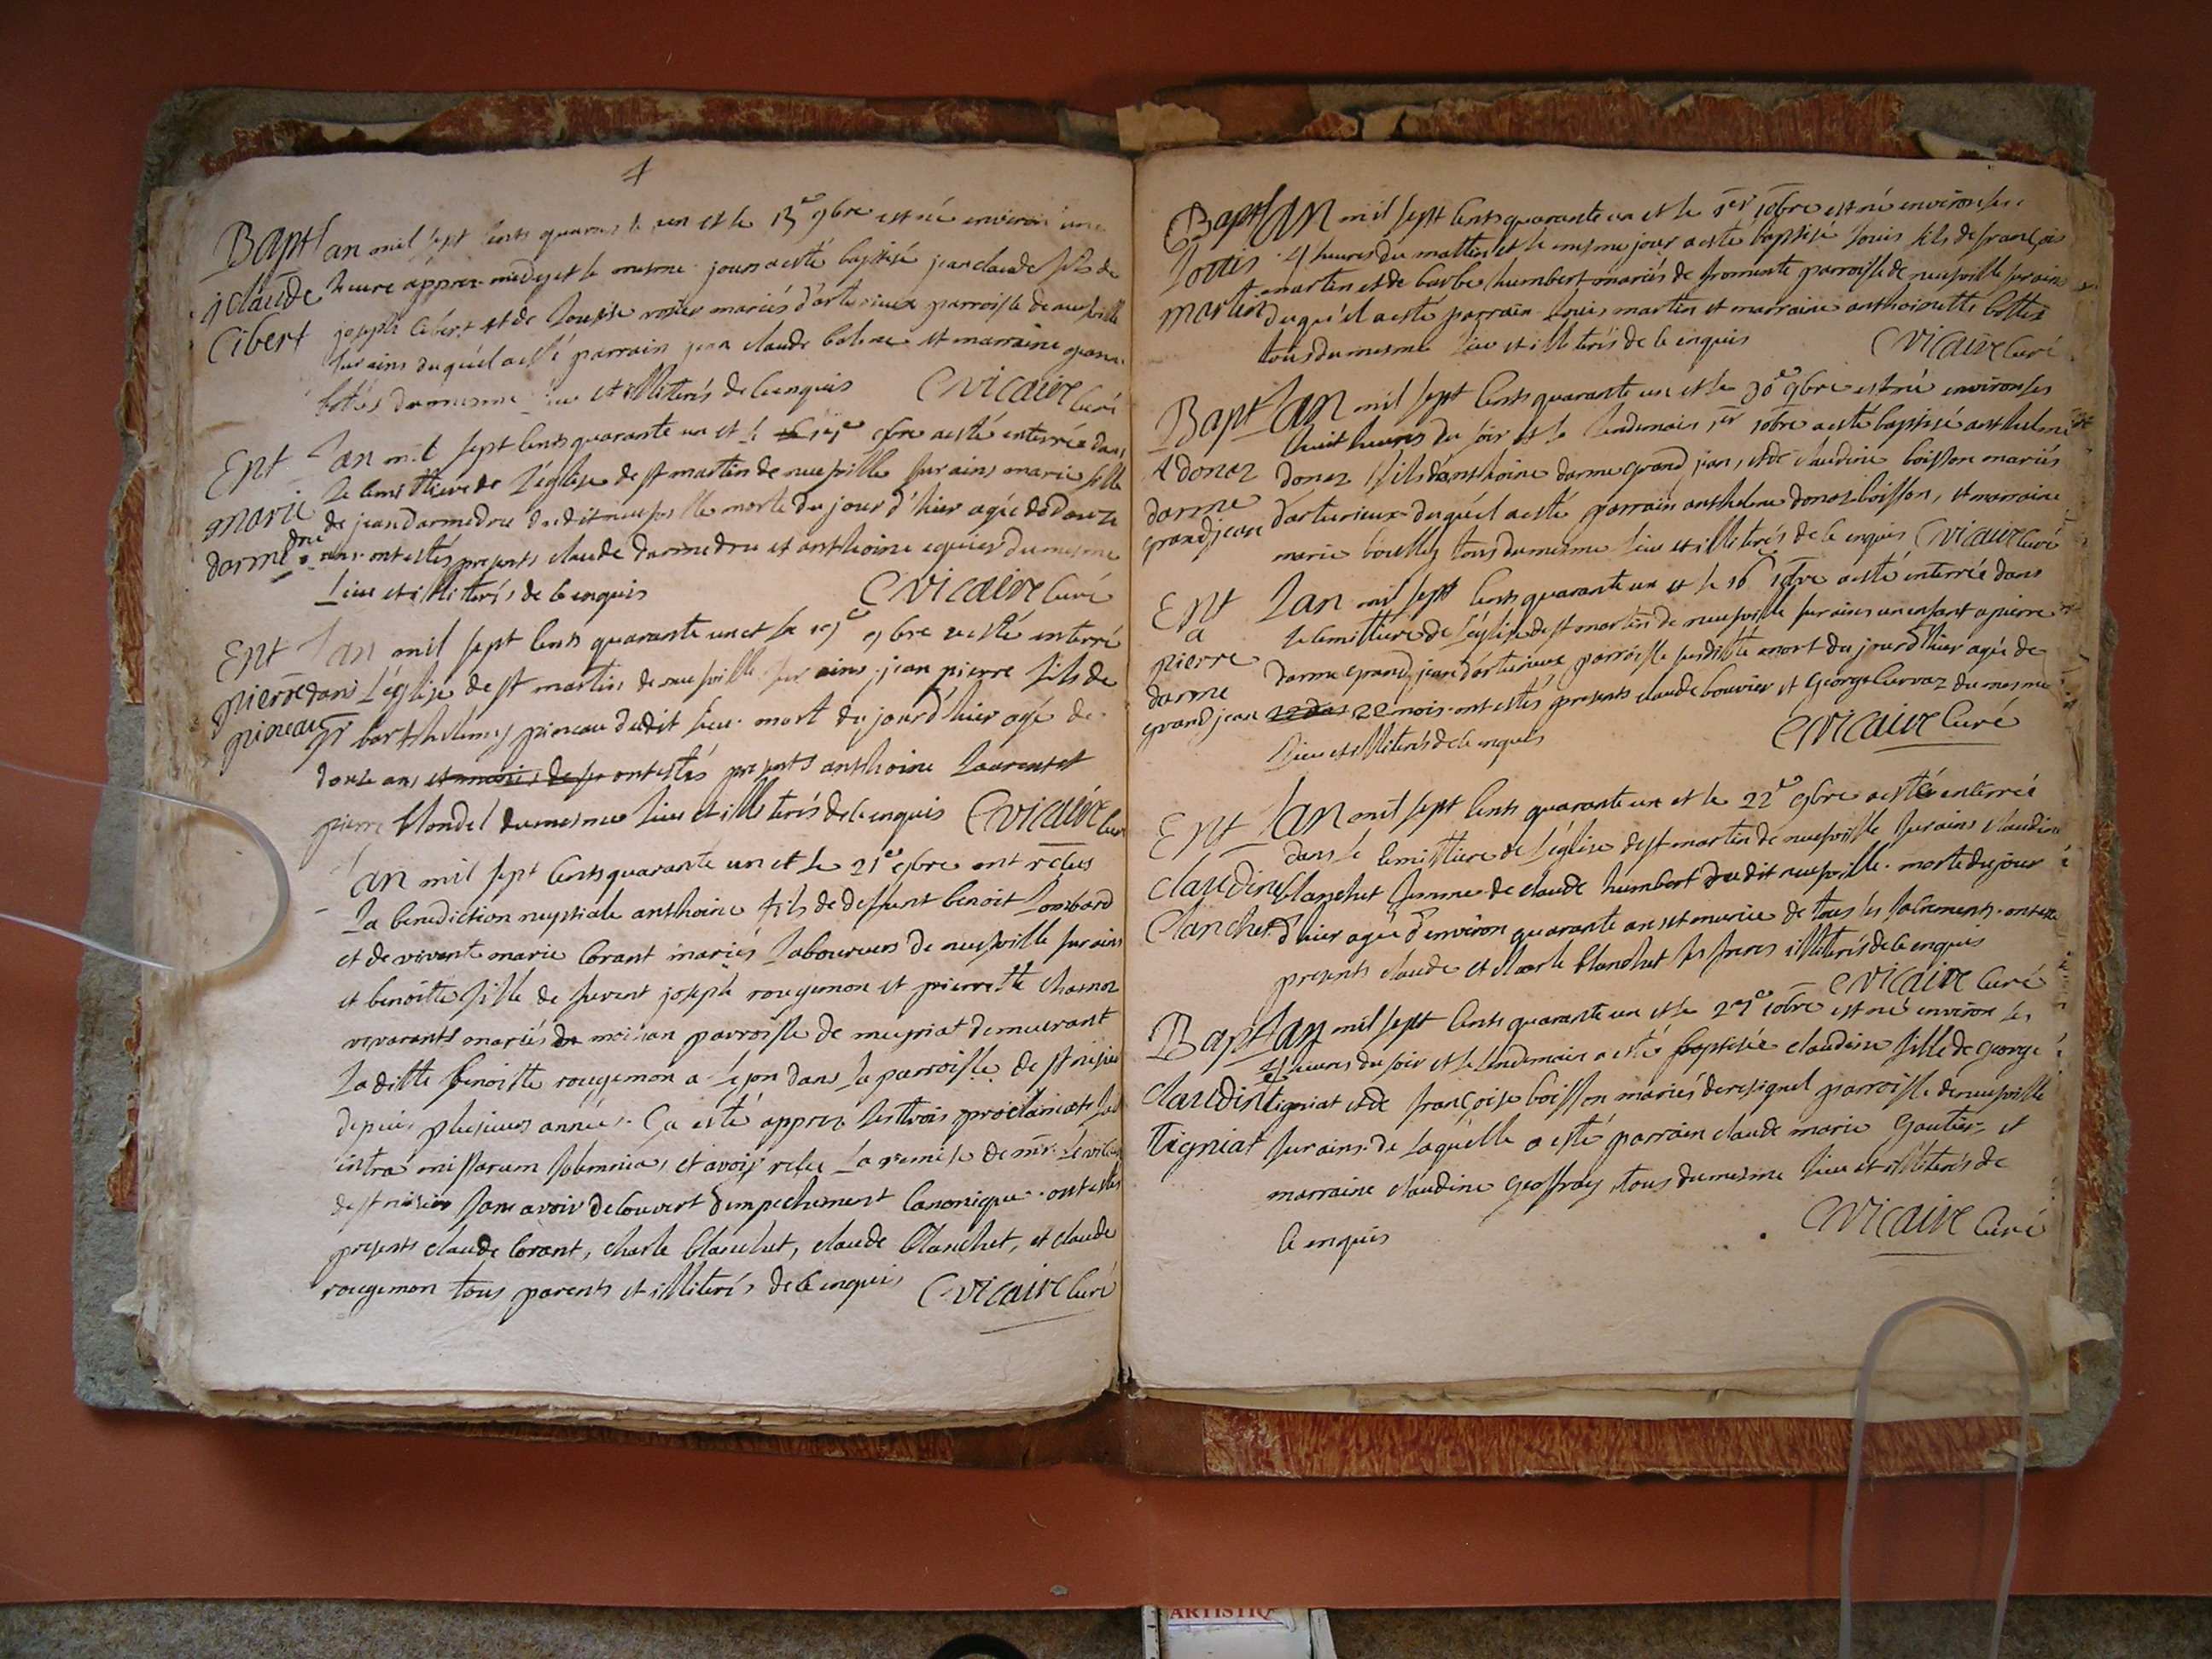 Bapt Lan mil sept cents quarante un et le 13e 9bre est né environ une
j claude heure appres midy et le mesme jour a esté baptisé jean claude fils de
Cibert joseph Cibert et de Louise rosier mariés d'arturieux parroisse de neufville
sur ains duquel a esté parrain jean claude et marraine
du mesme lieu et illiterés de ce enquis Cvicaire Curé
Ent Lan mil sept cents quarante un et le 9bre a esté enterrée dans
le cemittiere de L'église de st martin de neufville sur ains marie fille
marie de jean darmedru dudit neufville morte du jour d'hier agée de douze
darmedru ans ont estés presents claude darmedru et anthoine equier du mesme
Lieu et illiterés de ce enquis Cvicaire Curé
Ent Lan mil sept cents quarante un et le 9bre a esté enterré
pierre dans L'église de st martin de neufville sur ains jean pierre fils de
pioneau Sr barthelemy pioneau dudit lieu mort du jourd'hier agé de
douze ans ont estés presents anthoine Laurent et
pierre blondel du mesme lieu et illiterés de ce enquis Cvicaire Curé
Lan mil sept cents quarante un et le 21e 9bre ont reçus
La benediction nuptiale anthoine fils de deffunt benoit Lombard
et de vivante marie Corant mariés Laboureurs de neufville sur ains
et benoitte fille de furent joseph rougemon et pierrette charnoz
vivants mariés de parroisse de meyriat demeurant
La ditte benoitte rougemon a Lejon dans La parroisse de st
depuis plusieurs années. Ça esté apprez les trois proclamats
intra missarum solemnia, et avoir reçu La remise de mr. Le
de st sans avoir decouvert d'empechement Canonique. ont estés
presents claude Corant, charle blanchet, claude blanchet, et claude
rougemon tous parents et illiterés de ce enquis Cvicaire Curé
Bapt Lan mil sept cents quarante un et le 1er 10bre est né environ les
Louis 4 heures du mattin et le mesme jour a esté baptisé Louis fils de françois
martin martin et de barbe humbert mariés de fromente parroisse de neufville sur ains
duquel a esté parrain Louis martin et marraine anthoinette bottex
tous du mesme Lieu et illiterés de ce enquis Cvicaire Curé
Bapt Lan mil sept cents quarante un et le 30e 9bre est né environ les
huit heures du soir et le lendemain 1er 10bre a esté baptisé anthelme
A donaz donaz fils d'anthoine darme grand jean, et de claudine boisson mariés
darme d'arturieux duquel a esté parrain anthelme donaz boisson, et marraine
grandjean marie tous du mesme Lieu et illiterés de ce enquis Cvicaire Curé
Ent Lan mil sept cents quarante un et le 16e 10bre a esté enterrée dans
a le cemittiere de L'église de st martin de neufville sur ains un enfant a pierre
pierre darme grand jean d'arturieux parroisse susditte mort du jourd'hier agée de
darme
grandjean 22 mois ont estés presents claude bouvier et George Curvaz du mesme
Lieu et illiterés de ce enquis Cvicaire Curé
Ent Lan mil sept cents quarante un et le 22e 9bre a esté enterrée
dans le cemittiere de L'église de st martin de neufville sur ains claudine
claudine blanchet femme de claude humbert dudit neufville morte du jour
blanchet d'hier agée d'environ quarante ans et munie de tous les sacrements ont estés
presents claude et charle blanchet ses freres illiterés de ce enquis
Cvicaire Curé
Bapt Lan mil sept cents quarante un et le 27e 10bre est née environ les
4 heures du soir et le lendemain a esté baptisée claudine fille de George
claudine tigniat et de françoise boisson mariés de resignel parroisse de neufville
tigniat sur ains de Laquelle a esté parrain claude marie Gautier et
marraine claudine Geoffray tous du mesme lieu et illiterés de
ce enquis Cvicaire Curé
ARTISTIQ